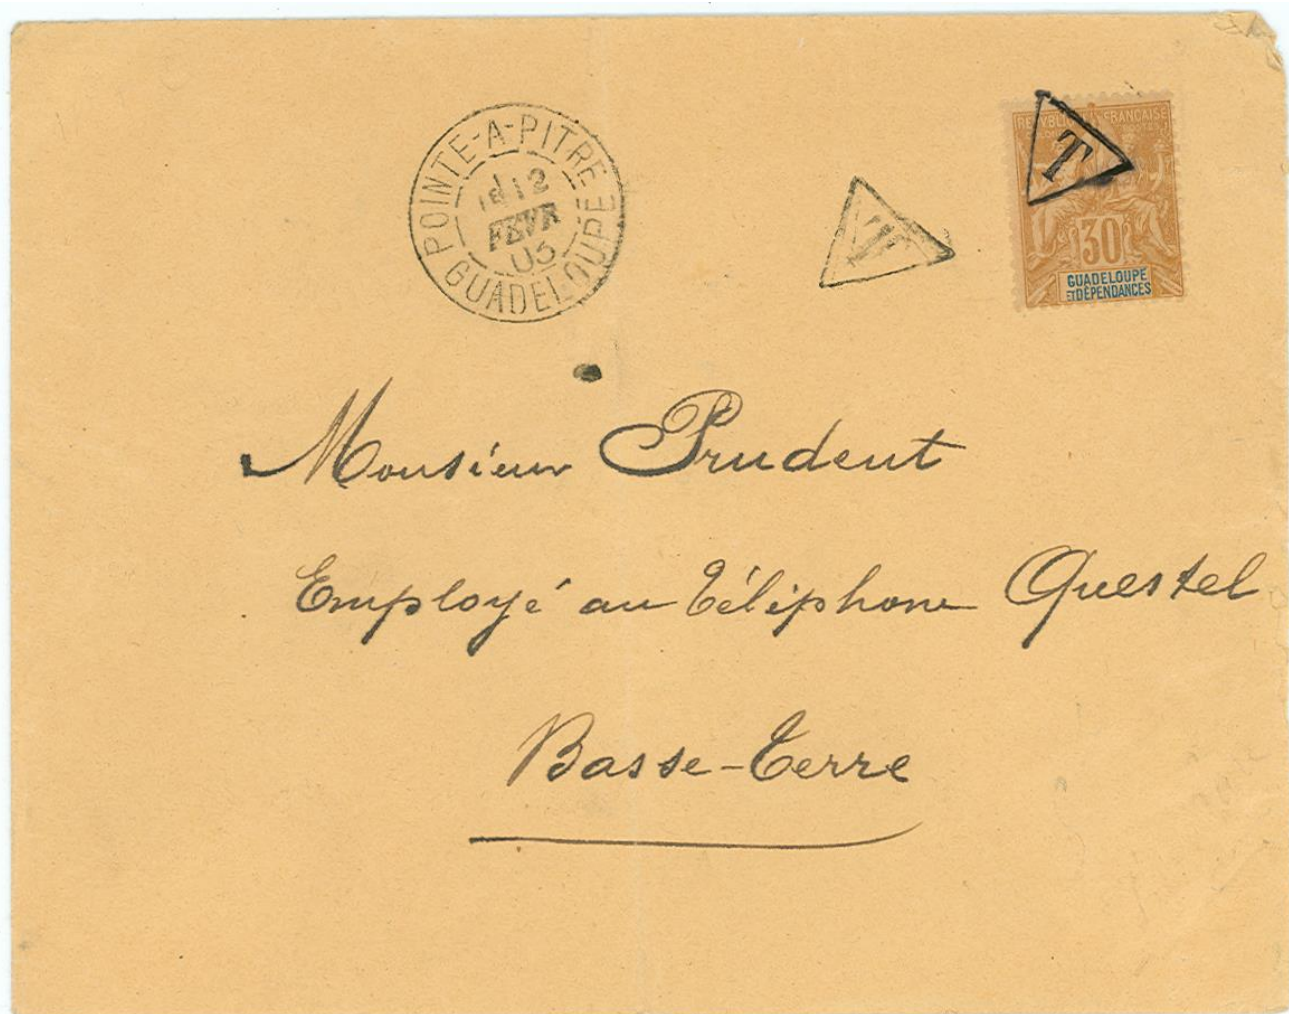 POINTE-A-PITRE
FEVR
GUADELOUPE
T
T
REPUBLIQUE FRANCAISE
30
GUADELOUPE
ET DÉPENDANCES
Monsieur Prudent
Employé au Téléphone Questel
Basse-Terre